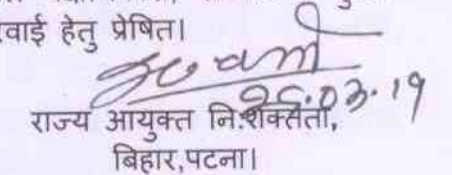 वाई हेतु प्रेषित।
26.03.19
राज्य आयुक्त नि:शक्तता,
बिहार,पटना।